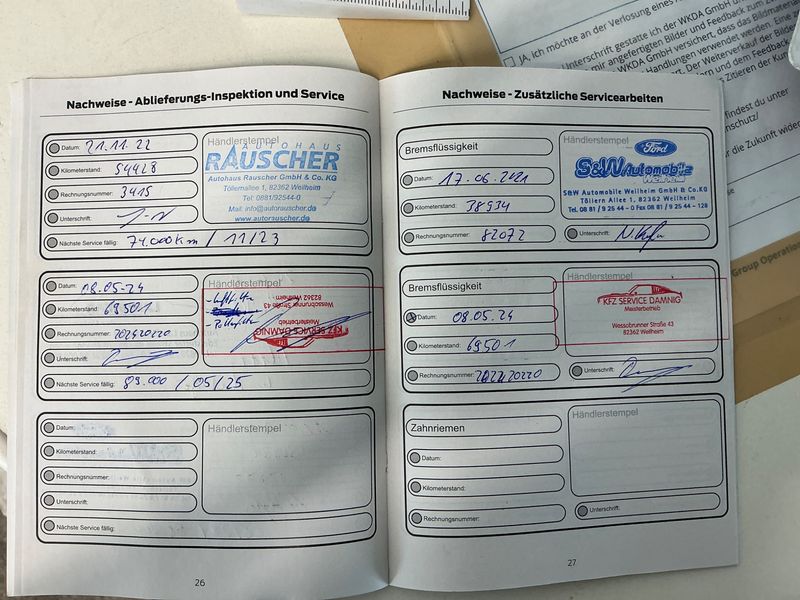 JA, ich möchte an der Verlosung eines
Unterschrift gestatte ich der WKDA GmbH
mir angefertigten Bilder und Feedback zum
WKDA GmbH versichert, dass das Bildmaterial
Handlungen verwendet werden. Eine
Der Weiterverkauf der Bilder
und dem Feedback
Zitieren der
findest du unter
für die Zukunft
Group Operation
Nachweise - Ablieferungs-Inspektion und Service
Datum: 21.11.22
Kilometerstand: 54428
Rechnungsnummer: 3415
Unterschrift:
Nächste Service fällig: 74.000km / 11/23
Händlerstempel
AUTOHAUS
RAUSCHER
Autohaus Rauscher GmbH & Co. KG
Töllernallee 1, 82362 Weilheim
Tel: 0881/92544-0
Mail: info@autorauscher.de
www.autorauscher.de
Datum: 08.05.24
Kilometerstand: 69501
Rechnungsnummer: 202420220
Unterschrift:
Nächste Service fällig: 89.000 / 05/25
Händlerstempel
KFZ SERVICE DAMNIG
Meisterbetrieb
Wessobrunner Straße 43
82362 Weilheim
Datum:
Kilometerstand:
Rechnungsnummer:
Unterschrift:
Nächste Service fällig:
Händlerstempel
26
Nachweise - Zusätzliche Servicearbeiten
Bremsflüssigkeit
Datum: 17.06.2021
Kilometerstand: 38934
Rechnungsnummer: 82072
Händlerstempel
Ford
S&W Automobile
Weilheim
S&W Automobile Weilheim GmbH & Co.KG
Töllern Allee 1, 82362 Weilheim
Tel. 08 81 / 9 25 44 - 0 Fax 08 81 / 9 25 44 - 128
Unterschrift:
Bremsflüssigkeit
Datum: 08.05.24
Kilometerstand: 69501
Rechnungsnummer: 202420220
Händlerstempel
KFZ SERVICE DAMNIG
Meisterbetrieb
Wessobrunner Straße 43
82362 Weilheim
Unterschrift:
Zahnriemen
Datum:
Kilometerstand:
Rechnungsnummer:
Händlerstempel
Unterschrift:
27